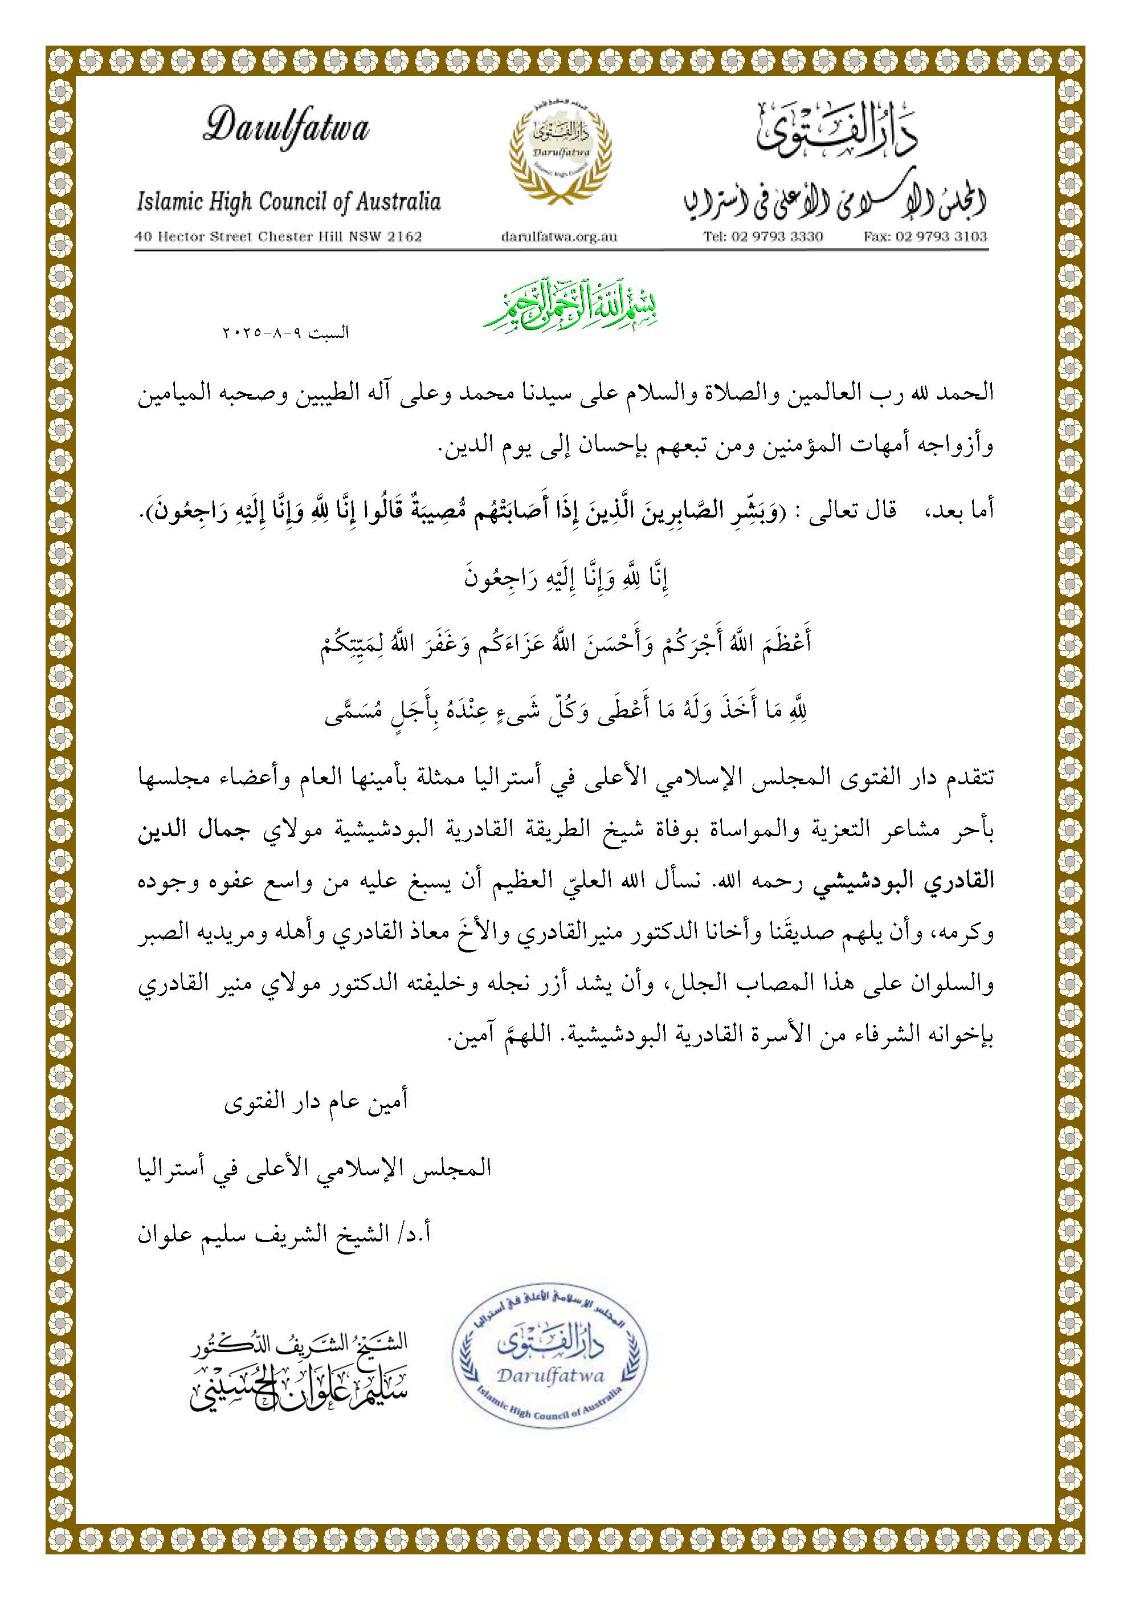 Darulfatwa
Islamic High Council of Australia
40 Hector Street Chester Hill NSW 2162
دار الفتوى
Darulfatwa
darulfatwa.org.au
دَارُ الفَتْوَى
المجلس الإسلامي الأعلى في أستراليا
Tel: 02 9793 3330 Fax: 02 9793 3103
بسم الله الرحمن الرحيم
السبت ٩-٨-٢٠٢٥
الحمد لله رب العالمين والصلاة والسلام على سيدنا محمد وعلى آله الطيبين وصحبه الميامين
وأزواجه أمهات المؤمنين ومن تبعهم بإحسان إلى يوم الدين.
أما بعد، قال تعالى : (وَبَشِّرِ الصَّابِرِينَ الَّذِينَ إِذَا أَصَابَتْهُم مُّصِيبَةٌ قَالُوا إِنَّا لِلَّهِ وَإِنَّا إِلَيْهِ رَاجِعُونَ).
إِنَّا لِلَّهِ وَإِنَّا إِلَيْهِ رَاجِعُونَ
أَعْظَمَ اللَّهُ أَجْرَكُمْ وَأَحْسَنَ اللَّهُ عَزَاءَكُم وَغَفَرَ اللَّهُ لِمَيِّتِكُمْ
لِلَّهِ مَا أَخَذَ وَلَهُ مَا أَعْطَى وَكُلّ شَىءٍ عِنْدَهُ بِأَجَلٍ مُسَمَّى
تتقدم دار الفتوى المجلس الإسلامي الأعلى في أستراليا ممثلة بأمينها العام وأعضاء مجلسها
بأحر مشاعر التعزية والمواساة بوفاة شيخ الطريقة القادرية البودشيشية مولاي جمال الدين
القادري البودشيشي رحمه الله. نسأل الله العليّ العظيم أن يسبغ عليه من واسع عفوه وجوده
وكرمه، وأن يلهم صديقَنا وأخانا الدكتور منيرالقادري والأخَ معاذ القادري وأهله ومريديه الصبر
والسلوان على هذا المصاب الجلل، وأن يشد أزر نجله وخليفته الدكتور مولاي منير القادري
بإخوانه الشرفاء من الأسرة القادرية البودشيشية. اللهمَّ آمين.
أمين عام دار الفتوى
المجلس الإسلامي الأعلى في أستراليا
أ.د/ الشيخ الشريف سليم علوان
الشَّيْخُ الشَّرِيفُ الدُّكْتُور
سَلِيم عَلْوَان الحُسَيْنِي
المجلس الإسلامي الأعلى في أستراليا
دَارُ الفَتْوَى
Darulfatwa
Islamic High Council of Australia